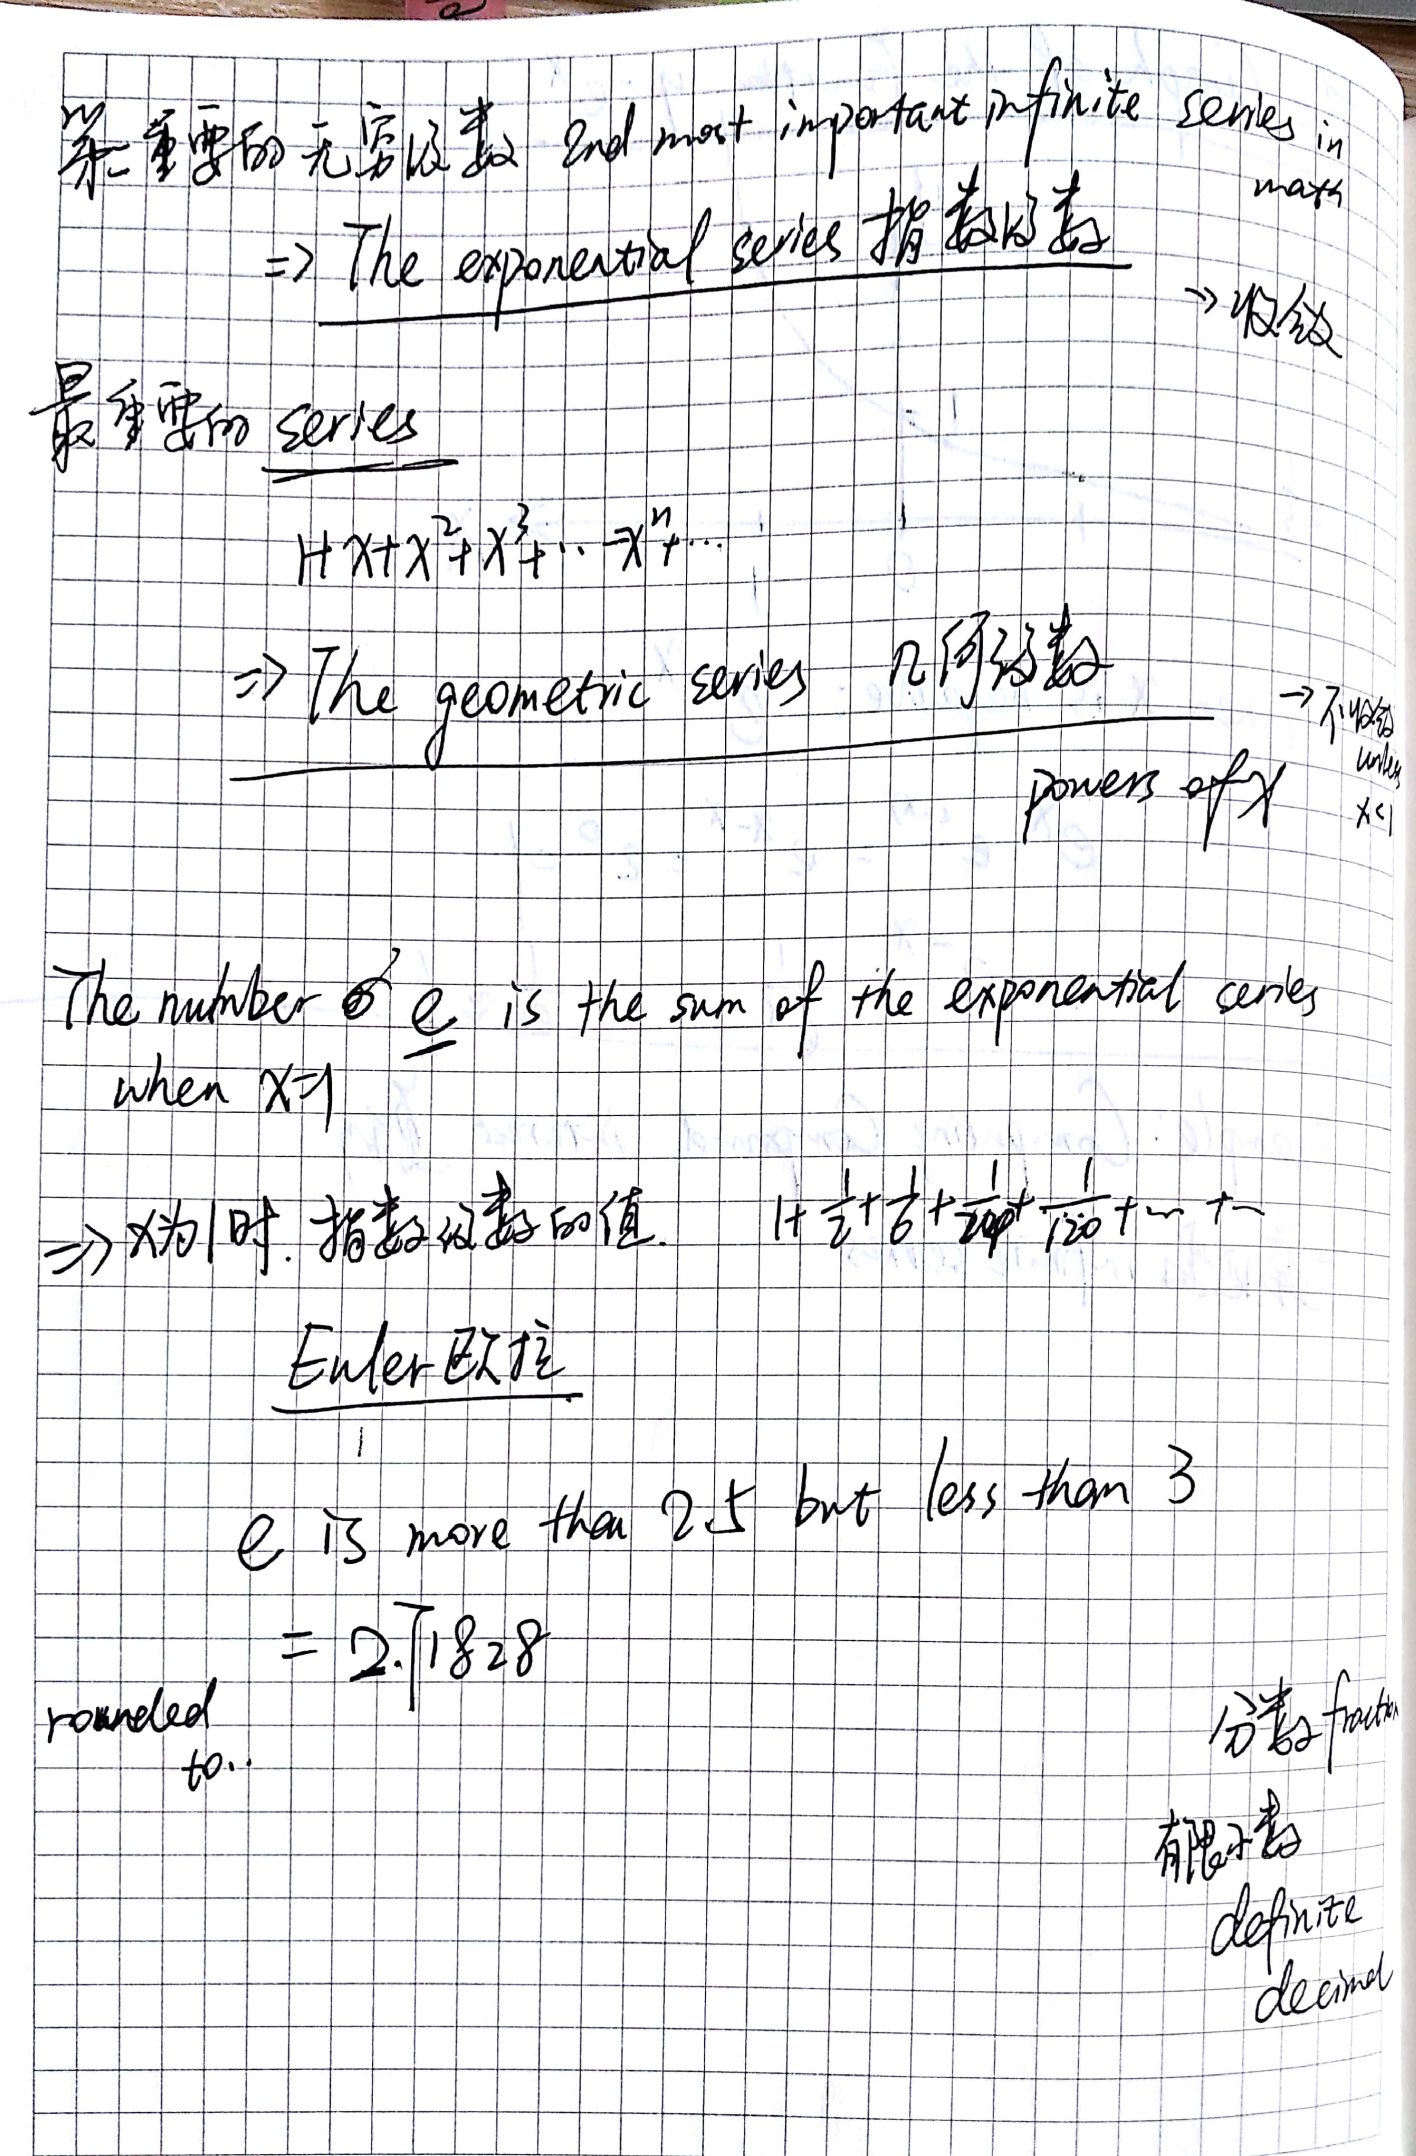 第二重要的无穷级数 2nd most important infinite series in math
=> The exponential series 指数级数
→ 收敛
最重要的 series
1+x+x²+x³+... -xⁿ+...
=> The geometric series 几何级数
→ 不收敛 unless x<1
powers of x
The number e is the sum of the exponential series
when x=1
=> x为1时. 指数级数的值. 1+1/2+1/6+1/24+1/120+...+...
Euler 欧拉
e is more than 2.5 but less than 3
= 2.71828
rounded
to..
分数 fraction
有限小数
definite
decimal